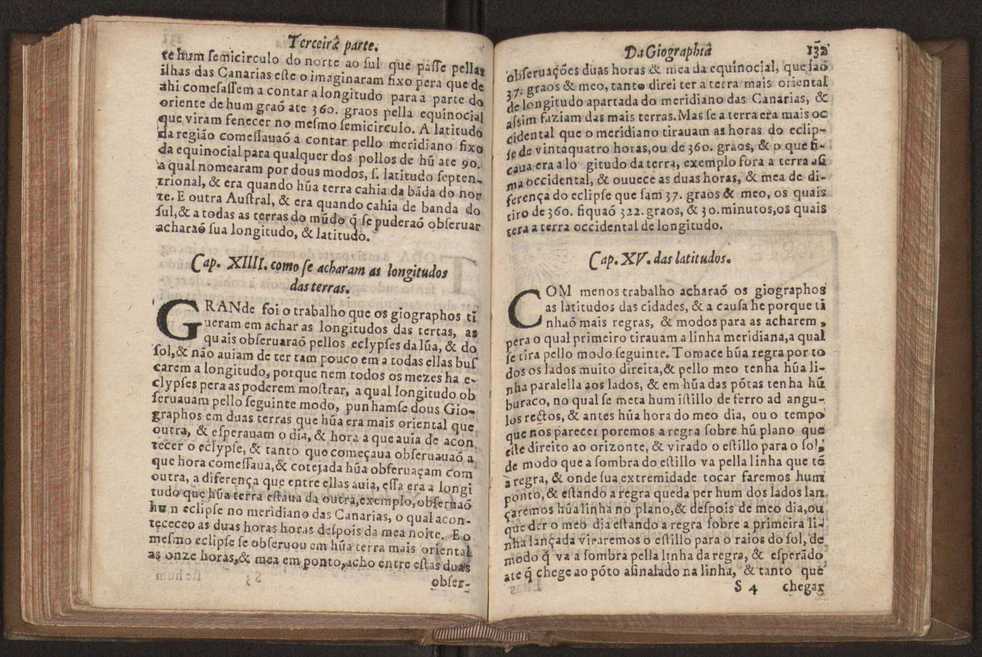 Terceirâ parte.
te hum semicirculo do norte ao sul que passe pellas
ilhas das Canarias este o imaginaram fixo pera que de
ahi comesassem a contar a longitudo para a parte do
oriente de hum graõ ate 360. graos pella equinocial
que viram fenecer no mesmo semicirculo. A latitudo
da região comessauaõ a contar pello meridiano fixo
da equinocial para qualquer dos pollos de hũ ate 90.
a qual nomearam por dous modos, s. latitudo septen-
trional, & era quando hũa terra cahia da bãda do nor
te. E outra Austral, & era quando cahia de banda do
sul,& a todas as terras do mũdo q̃ se puderaõ obseruar
acharaõ sua longitudo, & latitudo.
Cap. XIIII. como se acharam as longitudos
das terras.
GRANde foi o trabalho que os giographos ti
ueram em achar as longitudos das tertas, as
quais obseruaraõ pellos eclypses da lũa, & do
sol,& não auiam de ter tam pouco em a todas ellas bus
carem a longitudo, porque nem todos os mezes ha e-
clypses pera as poderem mostrar, a qual longitudo ob
seruauam pello seguinte modo, punhamse dous Gio-
graphos em duas terras que hũa era mais oriental que
outra, & esperauam o dia, & hora a que auia de acon
tecer o eclypse, & tanto que começaua obseruauaõ a
que hora comessaua,& cotejada hũa obseruaçam com
outra, a diferença que entre ellas auia, essa era a longi
tudo que hũa terra estaua da outra,exemplo,obseruaõ
hum eclipse no meridiano das Canarias, o qual acon-
tececeo as duas horas horas despois da mea noite. E o
mesmo eclipse se obseruou em hũa terra mais oriental
as onze horas,& mea em ponto,acho entre estas duas
obser-
Da Giographiâ 132
obseruações duas horas & mea da equinocial, que saõ
37. graos & meo, tanto direi ter a terra mais oriental
de longitudo apartada do meridiano das Canarias, &
assim faziam das mais terras. Mas se a terra era mais oc
cidental que o meridiano tirauam as horas do eclip-
se de vintaquatro horas,ou de 360. graos, & o que fi-
caua era a lo gitudo da terra, exemplo fora a terra asi
ma occidental, & ouuece as duas horas, & mea de di-
ferença do eclipse que sam 37. graos & meo, os quais
tiro de 360. fiquaõ 322. graos, & 30. minutos,os quais
tera a terra occidental de longitudo.
Cap. XV. das latitudos.
COM menos trabalho acharaõ os giographos
as latitudos das cidades, & a causa he porque ti
nhaõ mais regras, & modos para as acharem,
pera o qual primeiro tirauam a linha meridiana,a qual
se tira pello modo seguinte. Tomace hũa regra por to
dos os lados muito direita,& pello meo tenha hũa li-
nha paralella aos lados, & em hũa das põtas tenha hũ
buraco, no qual se meta hum istillo de ferro ad angu-
los rectos, & antes hũa hora do meo dia, ou o tempo
que nos parecer poremos a regra sobre hũ plano que
este direito ao orizonte, & virado o estillo para o sol,
de modo que a sombra do estillo va pella linha que tẽ
a regra, & onde sua extremidade tocar faremos hum
ponto, & estando a regra queda per hum dos lados lan
çaremos hũa linha no plano,& despois de meo dia,ou
que der o meo dia estando a regra sobre a primeira li-
nha lançada viraremos o estillo para o raios do sol, de
modo q̃ va a sombra pella linha da regra, & esperãdo
ate q̃ chege ao põto asinalado na linha, & tanto que
S 4 chegar